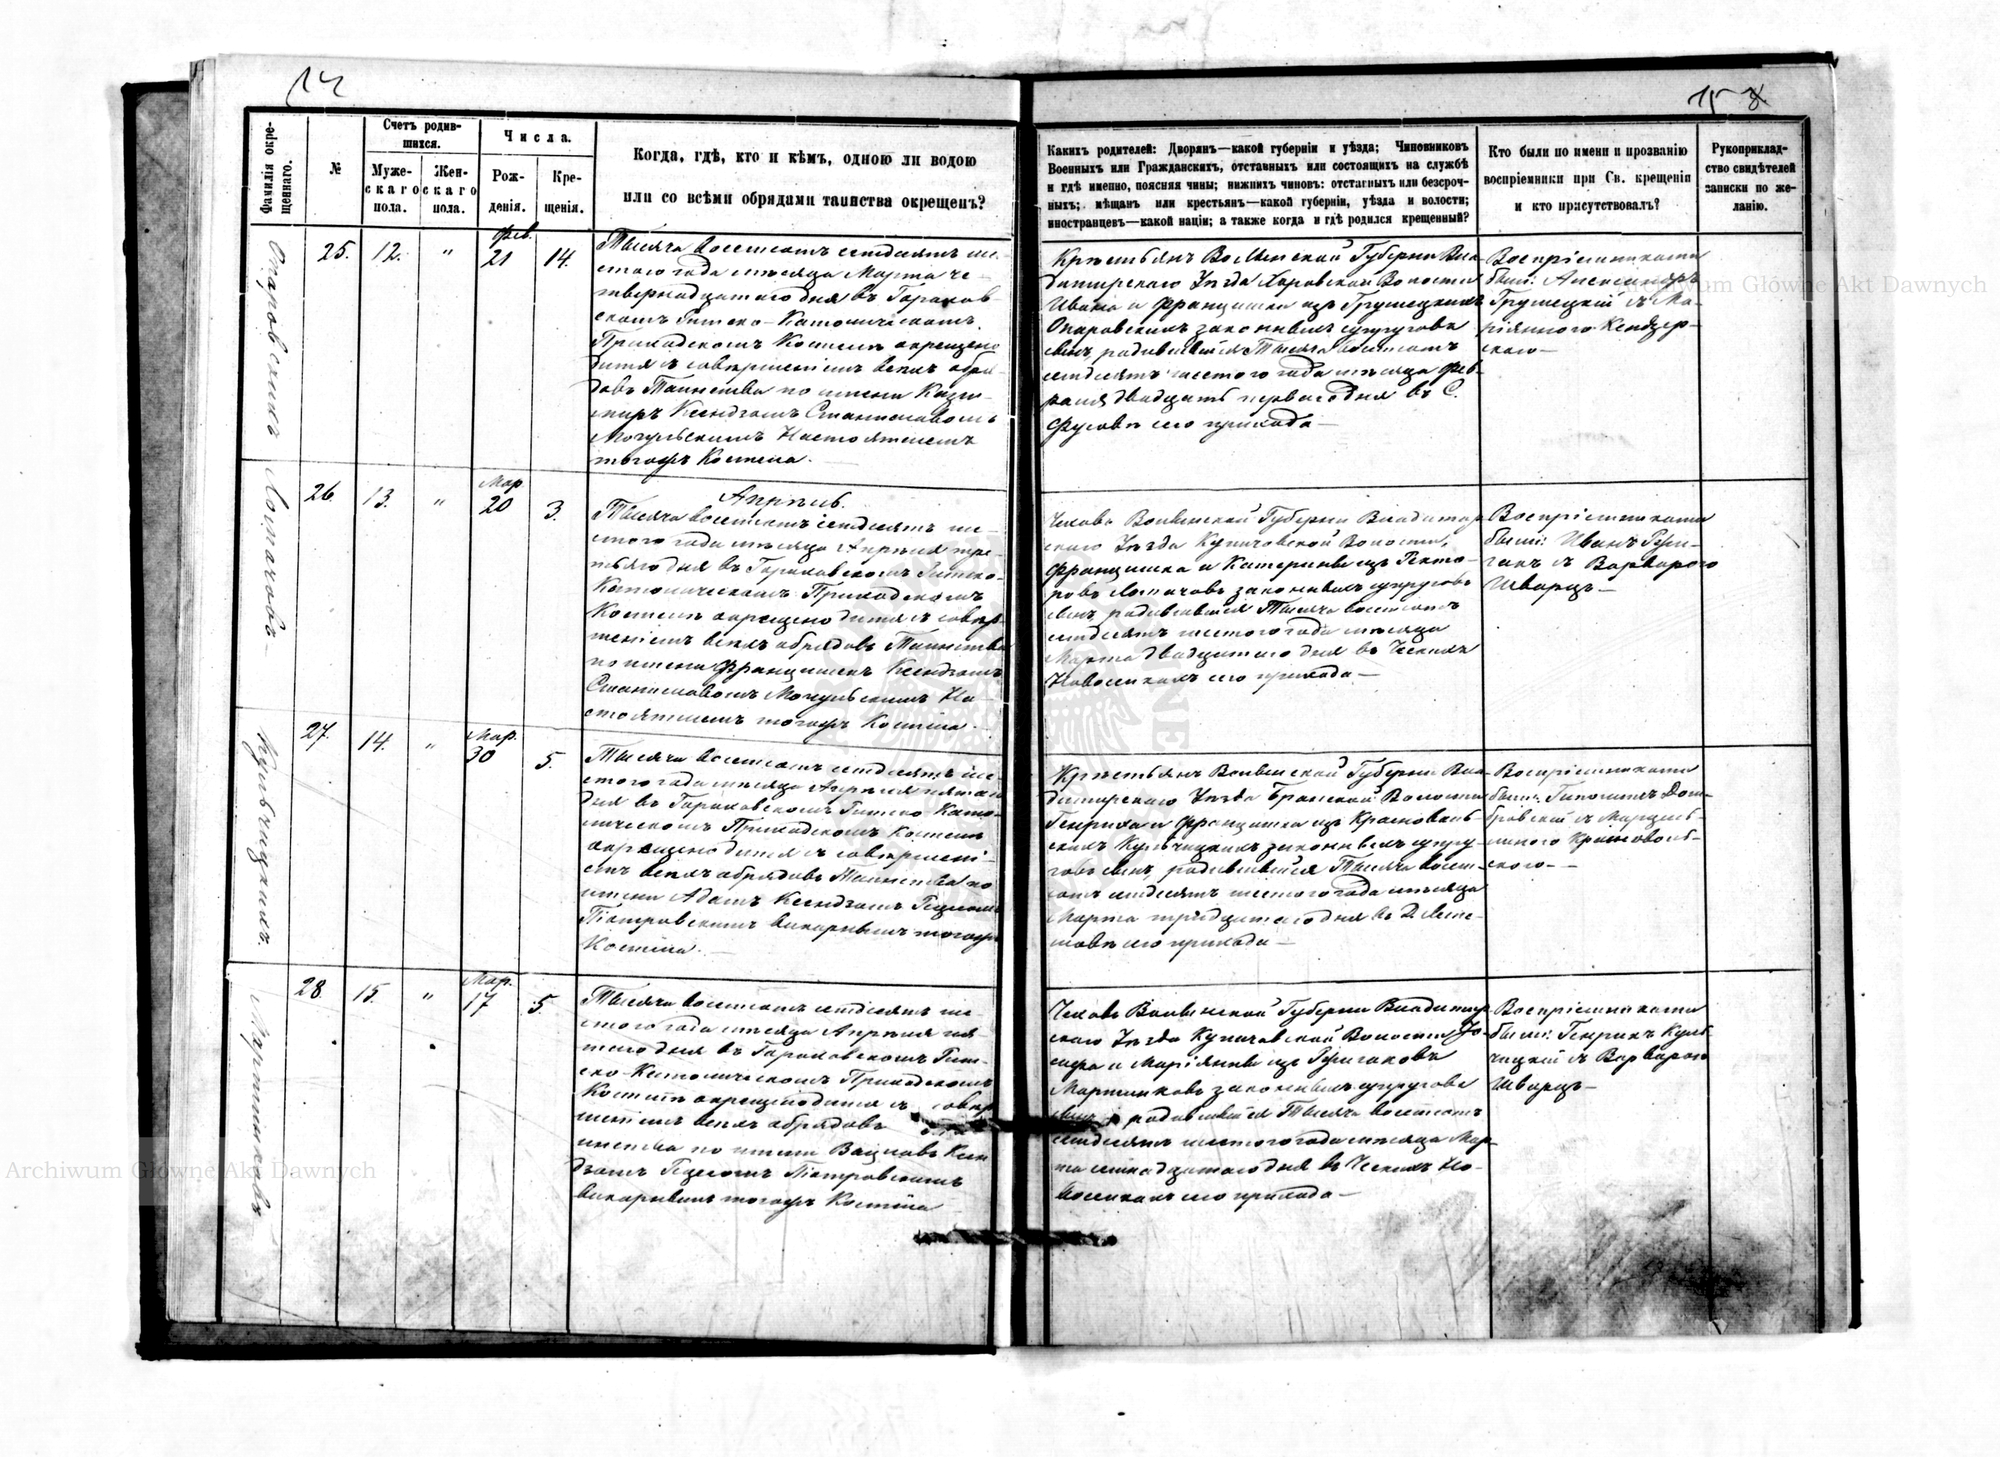 14
15
Фамилія окре-
щеннаго.
№
Счетъ родив-
шихся.
Муже-
скаго
пола.
Жен-
скаго
пола.
Числа.
Рож-
денія.
Кре-
щенія.
Когда, гдѣ, кто и кѣмъ, одною ли водою
или со всѣми обрядами таинства окрещенъ?
Каких родителей: Дворянъ—какой губерніи и уѣзда; Чиновниковъ
Военныхъ или Гражданскихъ, отставныхъ или состоящихъ на службѣ
и гдѣ именно, поясняя чины; нижнихъ чиновъ: отставныхъ или безсроч-
ныхъ; мѣщанъ или крестьянъ—какой губерніи, уѣзда и волости;
иностранцевъ—какой націи; а также когда и гдѣ родился крещенный?
Кто были по имени и прозванію
воспріемники при Св. крещеніи
и кто присутствовалъ?
Рукоприклад-
ство свидѣтелей
записки по же-
ланію.
25. 12. " Фев. 21 14.
Тысяча восемсотъ семдесятъ ше-
стого года мѣсяца Марта че-
твернадцатого дня въ Горохов-
скомъ Римско-Католическомъ
Приходскомъ Костелѣ окрещено
дитя съ совершеніемъ всѣхъ обря-
довъ Таинства по имени Кази-
миръ Ксендзомъ Станиславомъ
Могульскимъ Настоятелемъ
тогожъ Костела.
Крестьянъ Волынской Губерніи Вла-
димирскаго Уѣзда Хоровской Волости
Ивана и Францишки изъ Грушецкихъ
Опаровскихъ законныхъ супруговъ
сынъ, родившійся Тысяча восемсотъ
семдесятъ шестого года мѣсяца Фев-
раля двадцать первого дня въ С.
его прихода—
Воспріемниками
были: Александръ
Грушецкій съ Ма-
ріянною Кендзер-
скою—
26. 13. " Мар 20 3.
Апрѣль.
Тысяча восемсотъ семдесятъ ше-
стого года мѣсяца Апрѣля тре-
тьяго дня въ Гороховскомъ Римско-
Католическомъ Приходскомъ
Костелѣ окрещено дитя съ совер-
шеніемъ всѣхъ обрядовъ Таинства
по имени Францишекъ Ксендзомъ
Станиславомъ Могульскимъ На-
стоятелемъ тогожъ Костела.
Чеховъ Волынской Губерніи Владимир-
скаго Уѣзда Купичовской Волости,
Францишка и Катерины изъ
законныхъ супруговъ
сынъ родившійся Тысяча восемсотъ
семдесятъ шестого года мѣсяца
Марта двадцатого дня въ Ческихъ
Новоселкахъ его прихода—
Воспріемниками
были: Иванъ
съ Варварою
Шварцъ—
Кульчицкихъ
27. 14. " Мар. 30 5.
Тысяча восемсотъ семдесятъ ше-
стого года мѣсяца Апрѣля пятого
дня въ Гороховскомъ Римско Като-
лическомъ Приходскомъ Костелѣ
окрещено дитя съ совершені-
емъ всѣхъ обрядовъ Таинства по
имени Адамъ Ксендзомъ
Піотровскимъ викарнымъ тогожъ
Костела.—
Крестьянъ Волынской Губерніи Вла-
димирскаго Уѣзда Волости
Генриха и Францишки изъ Красноволь-
скихъ Кульчицкихъ законныхъ супру-
говъ сынъ, родившійся Тысяча восем-
сотъ семдесятъ шестого года мѣсяца
Марта тридцатого дня въ Д.
его прихода—
Воспріемниками
были: Дом-
бровскій съ
Красноволь-
скою.—
Мартинковъ
28. 15. " Мар. 17 5.
Тысяча восемсотъ семдесятъ ше-
стого года мѣсяца Апрѣля пя-
того дня въ Гороховскомъ Рим-
ско-Католическомъ Приходскомъ
Костелѣ окрещено дитя съ совер-
шеніемъ всѣхъ обрядовъ
по имени Вацлавъ Ксен-
дзомъ Піотровскимъ
викарнымъ тогожъ Костела
Чеховъ Волынской Губерніи Владимир-
скаго Уѣзда Купичовской Волости Іо-
сифа и Маріянны изъ
Мартинковъ законныхъ супруговъ
сынъ родившійся Тысяча восемсотъ
семдесятъ шестого года мѣсяца Мар-
та семнадцатого дня въ Ческихъ Но-
воселкахъ его прихода—
Воспріемниками
были: Генрихъ Куль-
чицкій съ Варварою
Шварцъ—
Archiwum Główne Akt Dawnych
Archiwum Główne Akt Dawnych